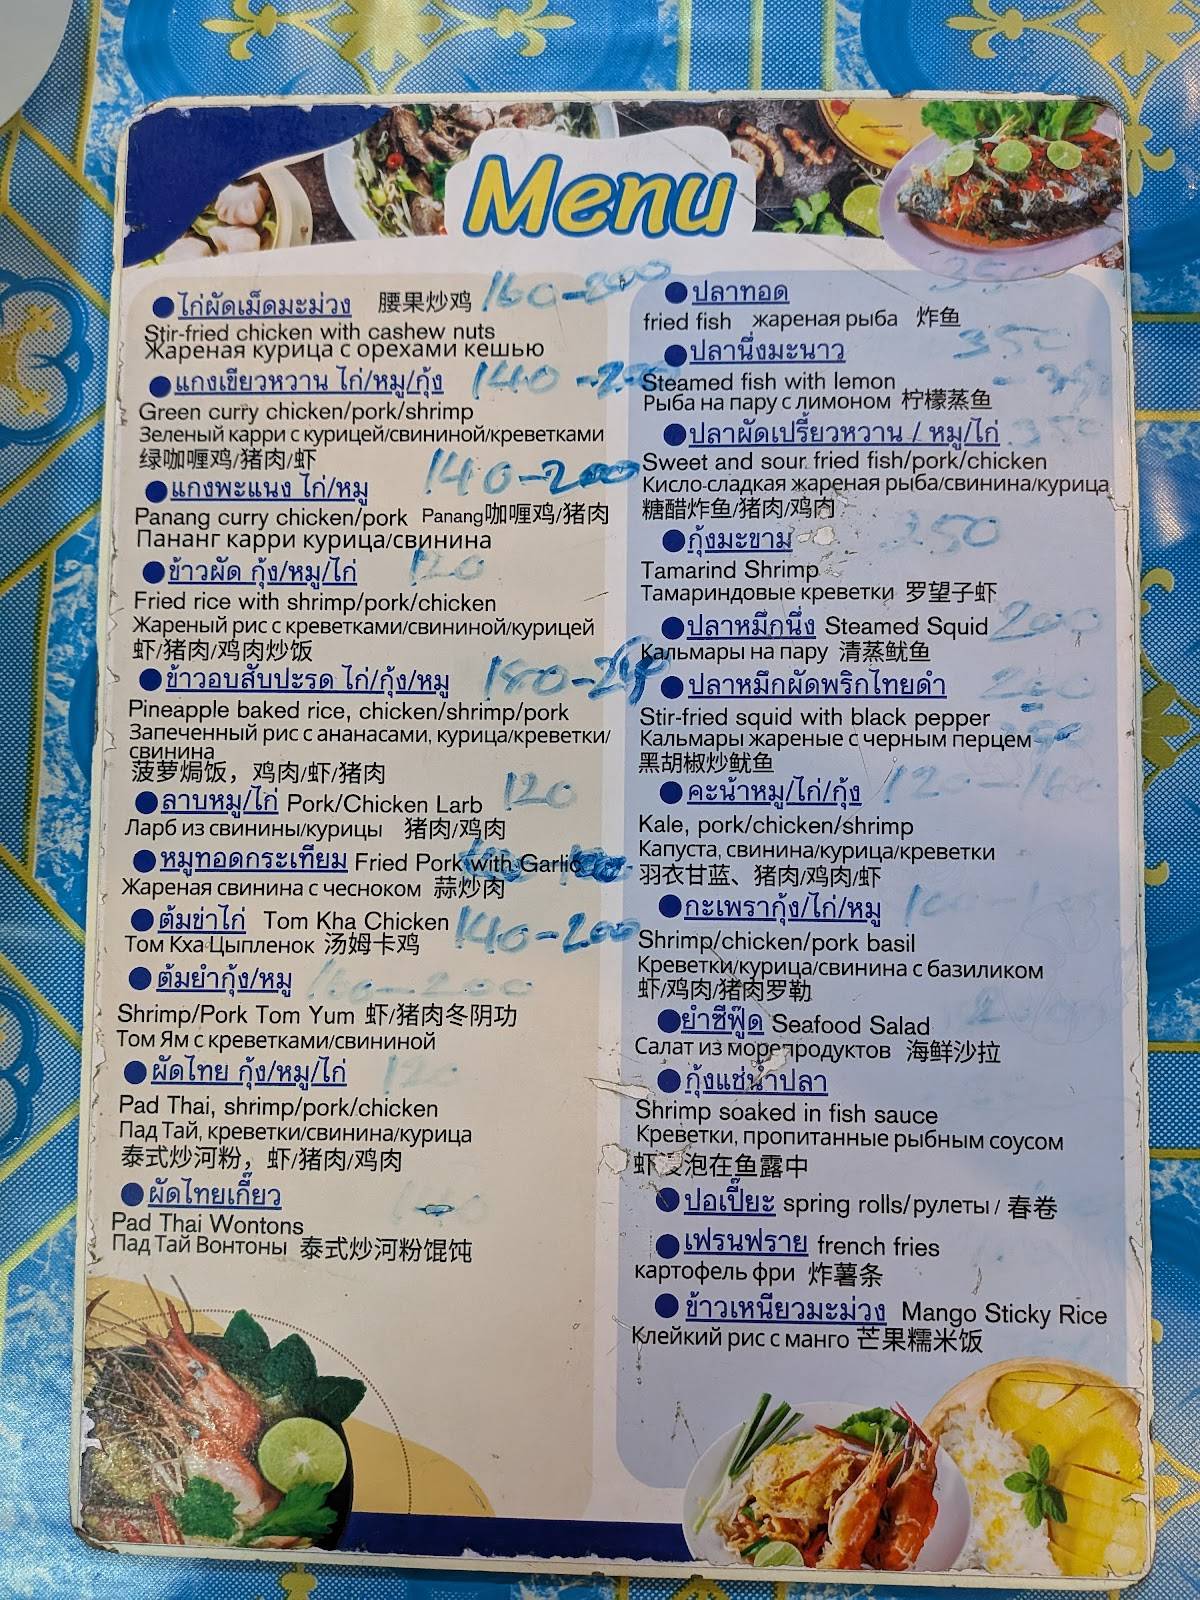 Menu
ไก่ผัดเม็ดมะม่วง 腰果炒鸡 160-200
Stir-fried chicken with cashew nuts
Жареная курица с орехами кешью
แกงเขียวหวาน ไก่/หมู/กุ้ง 140
Green curry chicken/pork/shrimp
Зеленый карри с курицей/свининой/креветками
绿咖喱鸡/猪肉/虾
แกงพะแนง ไก่/หมู 140-200
Panang curry chicken/pork Panang咖喱鸡/猪肉
Пананг карри курица/свинина
ข้าวผัด กุ้ง/หมู/ไก่ 120
Fried rice with shrimp/pork/chicken
Жареный рис с креветками/свининой/курицей
虾/猪肉/鸡肉炒饭
ข้าวอบสับปะรด ไก่/กุ้ง/หมู
Pineapple baked rice, chicken/shrimp/pork
Запеченный рис с ананасами, курица/креветки/
свинина
菠萝焗饭，鸡肉/虾/猪肉
ลาบหมู/ไก่ Pork/Chicken Larb 120
Ларб из свинины/курицы 猪肉/鸡肉
หมูทอดกระเทียม Fried Pork with Garlic
Жареная свинина с чесноком 蒜炒肉
ต้มข่าไก่ Tom Kha Chicken 140-200
Том Кха Цыпленок 汤姆卡鸡
ต้มยำกุ้ง/หมู 160-200
Shrimp/Pork Tom Yum 虾/猪肉冬阴功
Том Ям с креветками/свининой
ผัดไทย กุ้ง/หมู/ไก่ 120
Pad Thai, shrimp/pork/chicken
Пад Тай, креветки/свинина/курица
泰式炒河粉，虾/猪肉/鸡肉
ผัดไทยเกี๊ยว 140
Pad Thai Wontons
Пад Тай Вонтоны 泰式炒河粉馄饨
ปลาทอด 350
fried fish жареная рыба 炸鱼
ปลานึ่งมะนาว 350
Steamed fish with lemon
Рыба на пару с лимоном 柠檬蒸鱼
ปลาผัดเปรี้ยวหวาน / หมู/ไก่ 350
Sweet and sour fried fish/pork/chicken
Кисло-сладкая жареная рыба/свинина/курица
糖醋炸鱼/猪肉/鸡肉
กุ้งมะขาม 250
Tamarind Shrimp
Тамариндовые креветки 罗望子虾
ปลาหมึกนึ่ง Steamed Squid 200
Кальмары на пару 清蒸鱿鱼
ปลาหมึกผัดพริกไทยดำ 200
Stir-fried squid with black pepper
Кальмары жареные с черным перцем
黑胡椒炒鱿鱼
คะน้าหมู/ไก่/กุ้ง 120-160
Kale, pork/chicken/shrimp
Капуста, свинина/курица/креветки
羽衣甘蓝、猪肉/鸡肉/虾
กะเพรากุ้ง/ไก่/หมู
Shrimp/chicken/pork basil
Креветки/курица/свинина с базиликом
虾/鸡肉/猪肉罗勒
ยำซีฟู๊ด Seafood Salad
Салат из морепродуктов 海鲜沙拉
กุ้งแช่น้ำปลา
Shrimp soaked in fish sauce
Креветки, пропитанные рыбным соусом
虾浸泡在鱼露中
ปอเปี๊ยะ spring rolls/рулеты / 春卷
เฟรนฟราย french fries
картофель фри 炸薯条
ข้าวเหนียวมะม่วง Mango Sticky Rice
Клейкий рис с манго 芒果糯米饭